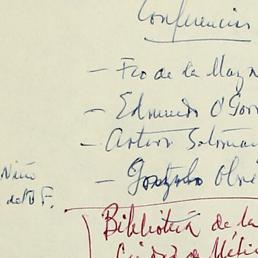 Conferencias
- Fco de la Maza
- Edmundo O'Gor
- Arturo
- Gonzalo Olvé
Niño
de
F.
Biblioteca de la
Ciudad de Méxi